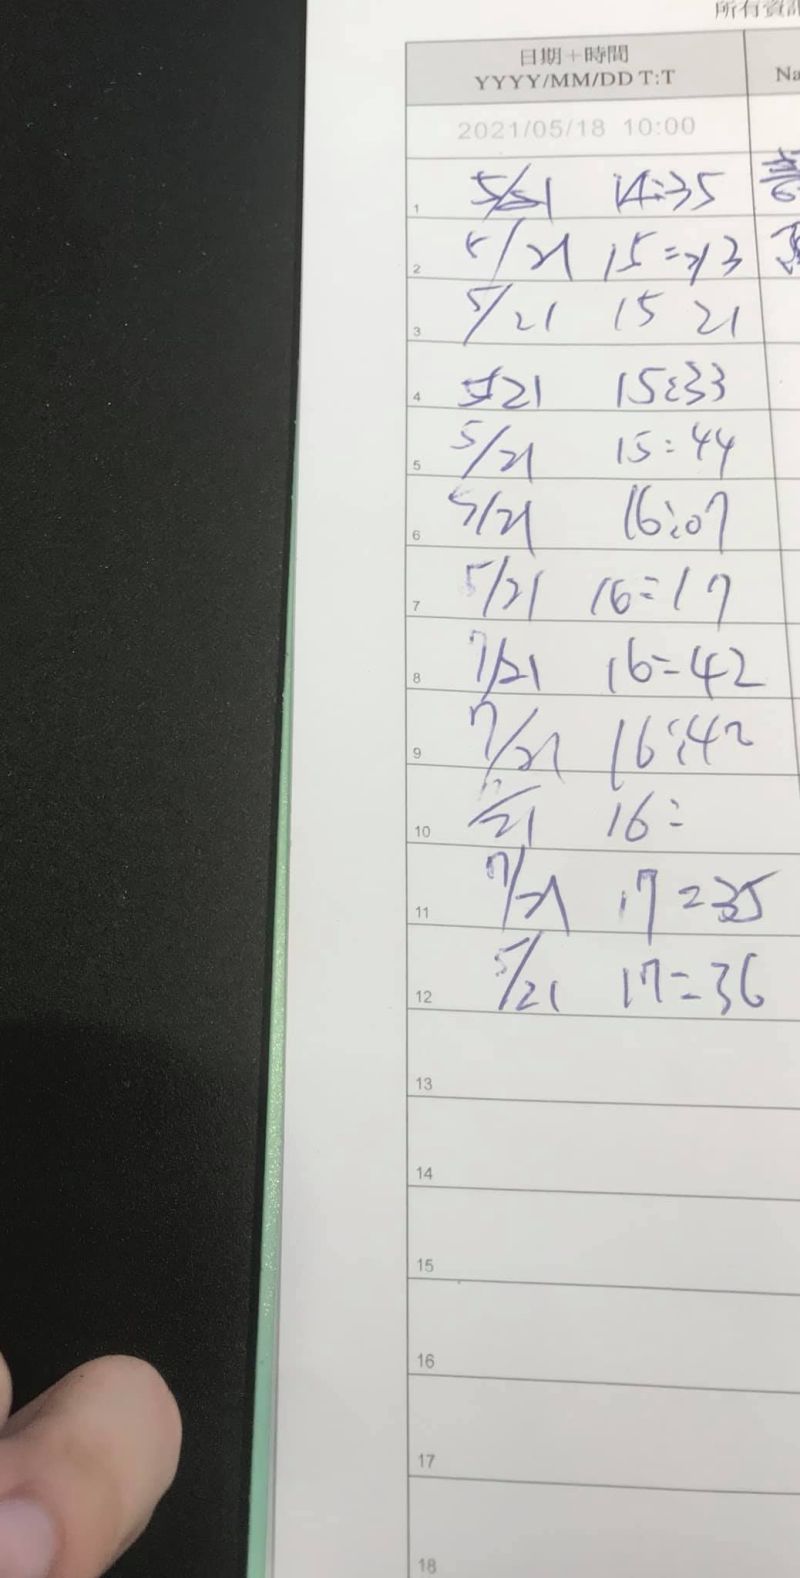 所有資訊
日期+時間
YYYY/MM/DD T:T
Na
2021/05/18 10:00
1 5/21 14:35
2 5/21 15:
3 5/21 15 21
4 5/21 15:33
5 5/21 15:44
6 5/21 16:07
7 5/21 16:17
8 7/21 16:42
9 7/21 16:42
10 /21 16:
11 7/21 17:35
12 5/21 17:36
13
14
15
16
17
18